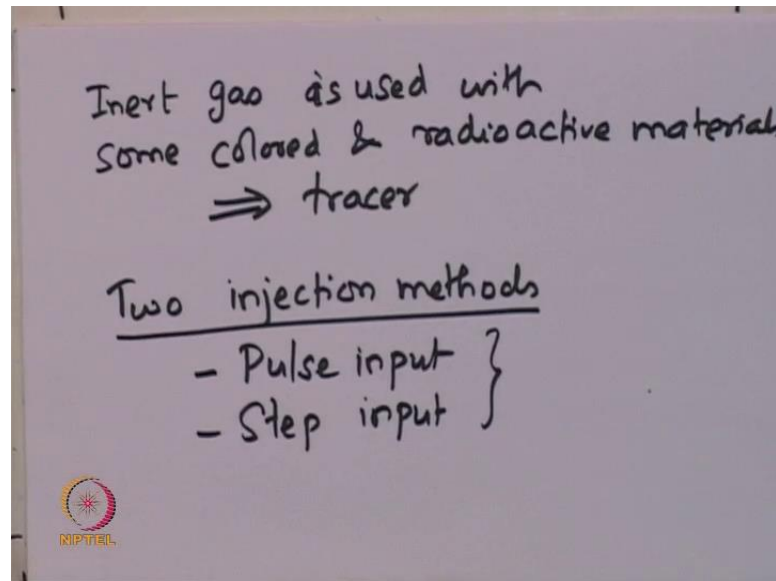 Inert gas is used with
some colored & radioactive material
⟹ tracer
Two injection methods
- Pulse input }
- Step input
NPTEL